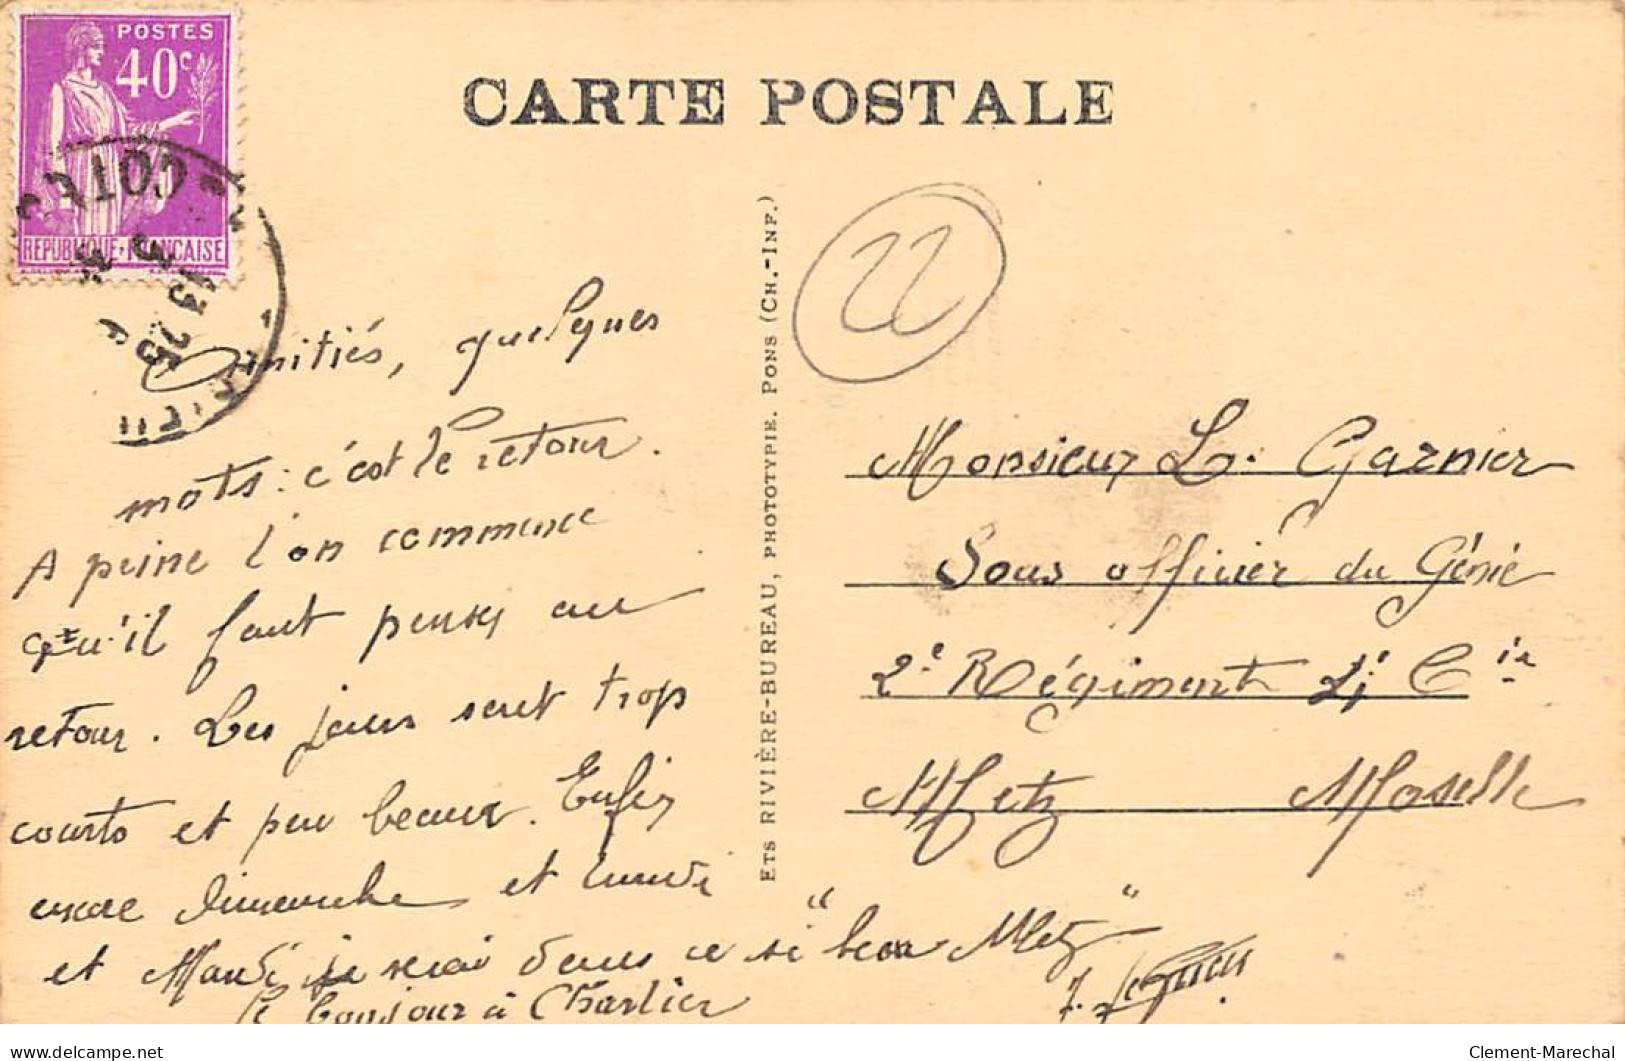 POSTES
40c
REPUBLIQUE FRANÇAISE
CARTE POSTALE
22
ETS RIVIÈRE-BUREAU, PHOTOTYPIE. PONS (CH.-INF.)
Amitiés, quelques
mots : c'est le retour.
A peine l'on commence
qu'il faut penser au
retour. Les jours sont trop
courts et peu beaux. Enfin
encore dimanche et lundi
et Mardi je serai dans ce si "beau Metz"
le bonjour à Charlier
Monsieur L. Garnier
Sous officier du Génie
2e Régiment 4e Cie
Metz Moselle
Clement-Marechal
https://www.delcampe.net